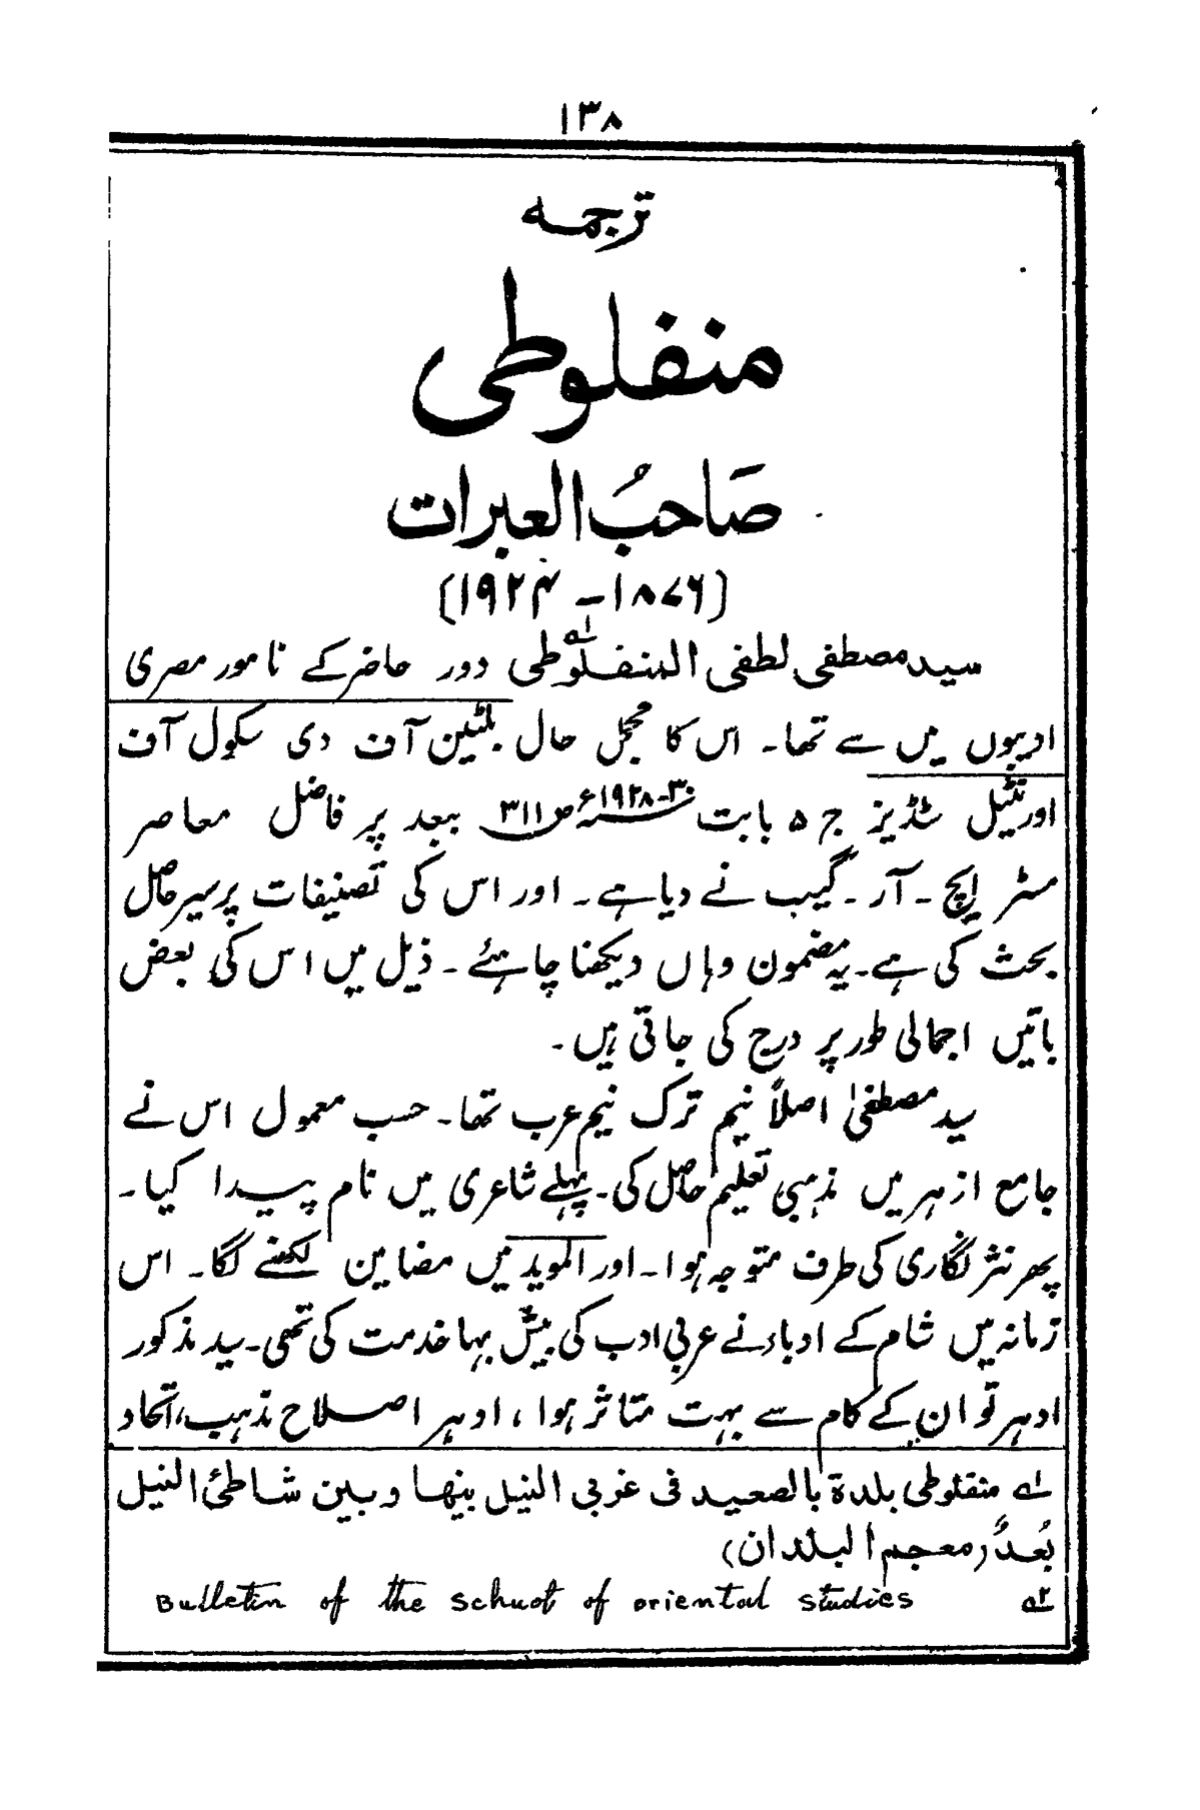 ۱۳۸
ترجمه
منفلوطی
صَاحبُ العبرات
(۱۸۷۶ – ۱۹۲۴)
سید مصطفی لطفی المنفلوطی۱ دور حاضر کے نامور مصری
ادیبوں میں سے تھا۔ اس کا مجمل حال بلٹین آف دی سکول آف
اورنٹیل سٹڈیز ج ۵ بابت ۳۰-۱۹۲۸ء ص ۳۱۱ ببعد پر فاضل معاصر
مسٹر ایچ ۔ آر ۔ گیب نے دیا ہے ۔ اور اس کی تصنیفات پر سیر حاصل
بحث کی ہے۔ یہ مضمون وہاں دیکھنا چاہئے ۔ ذیل میں اس کی بعض
باتیں اجمالی طور پر درج کی جاتی ہیں ۔
سید مصطفیٰ اصلاً نیم ترک نیم عرب تھا۔ حسب معمول اس نے
جامع ازہر میں مذہبی تعلیم حاصل کی۔ پہلے شاعری میں نام پیدا کیا۔
پھر نثر نگاری کی طرف متوجہ ہوا۔ اور الموید میں مضامین لکھنے لگا۔ اس
زمانہ میں شام کے ادباء نے عربی ادب کی بیش بہا خدمت کی تھی۔ سید مذکور
ادہر تو ان کے کام سے بہت متاثر ہوا ، ادہر اصلاح مذہب، اتحاد
۱ منقلوطی بلدة بالصعید فی غربی النیل بینها وبین شاطئ النیل
بُعدٌ (معجم البلدان)
۲ Bulletin of the school of oriental studies